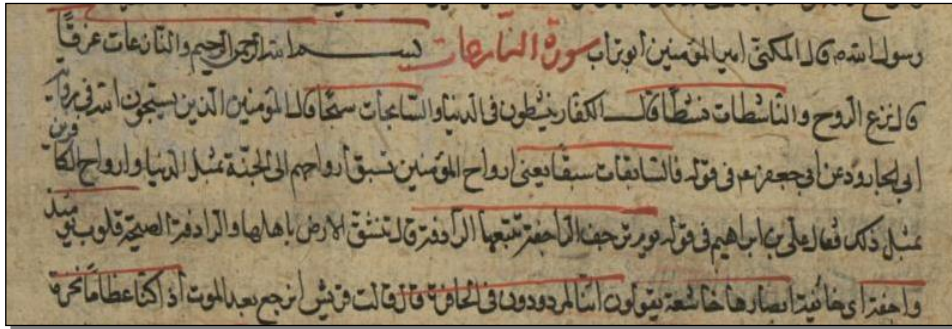 رسول الله ص قال المكنى امير المؤمنين ابوتراب سورة النازعات بسم الله الرحمن الرحيم والنازعات غرقا
قال نزع الروح والناشطات نشطا قال الكفار ينشطون فى الدنيا والسابحات سبحا قال المؤمنين الذين يسبحون الله وفى رواية
ابى الجارود عن ابى جعفر ع م فى قوله فالسابقات سبقا يعنى ارواح المؤمنين تسبق ارواحهم الى الجنة بمثل الدنيا وارواح الكافرين
بمثل ذلك فقال على بن ابراهيم فى قوله يوم ترجف الراجفة تتبعها الرادفة قال تنشق الارض باهلها والرادفة الصيحة قلوب يومئذ
واجفة اى خائفة ابصارها خاشعة يقولون ائنا لمردودون فى الحافرة قال قالت قريش انرجع بعد الموت أذا كنا عظاما نخرة